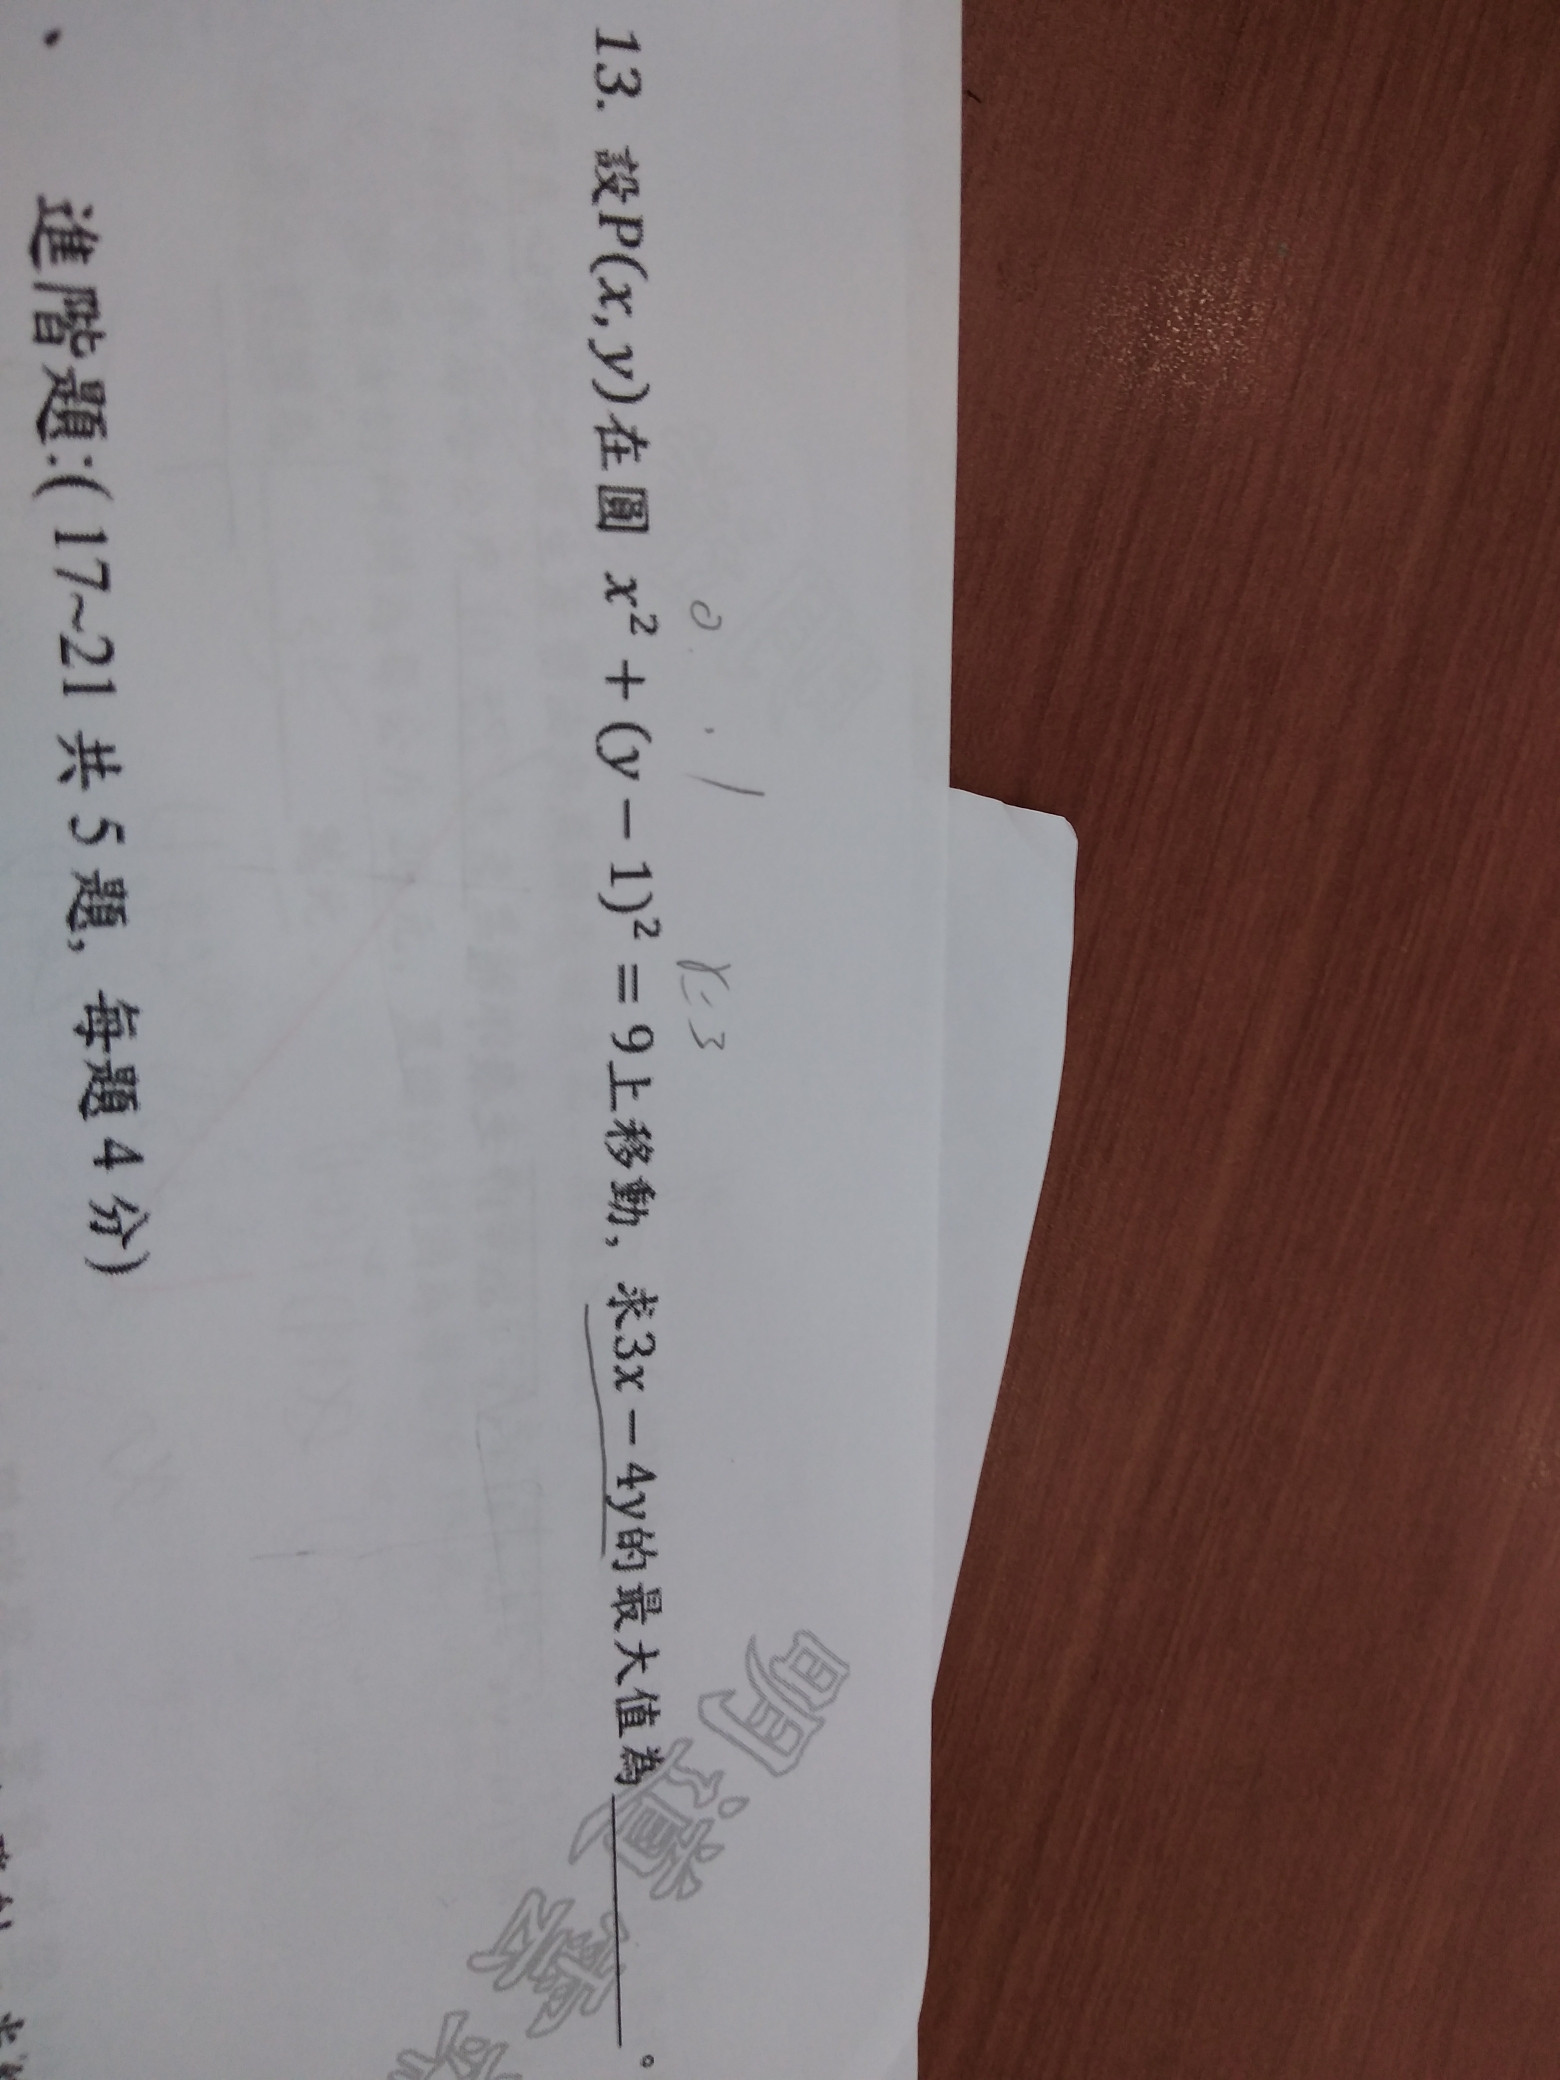 0 , 1 r=3
13. 設P(x, y)在圓 x² + (y − 1)² = 9上移動, 求3x − 4y的最大值為______。
進階題:( 17~21 共 5 題, 每題 4 分)
明道